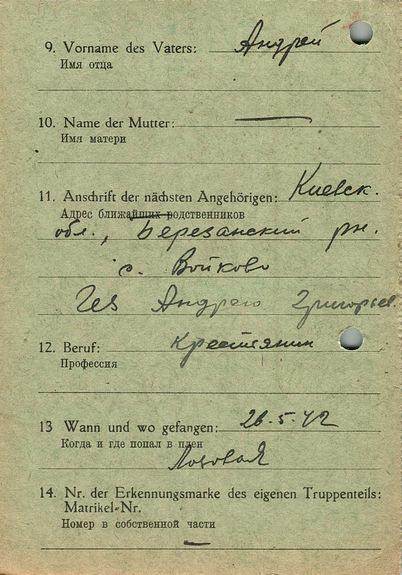 9. Vorname des Vaters: Андрей
Имя отца
10. Name der Mutter: —
Имя матери
11. Anschrift der nächsten Angehörigen: Киевск.
Адрес ближайших родственников
обл., Березанский рн.
с. Войково
Андрею Григорьев.
12. Beruf: крестянин
Профессия
13 Wann und wo gefangen: 26·5·42
Когда и где попал в плен
Лозовая
14. Nr. der Erkennungsmarke des eigenen Truppenteils:
Matrikel-Nr.
Номер в собственной части
—